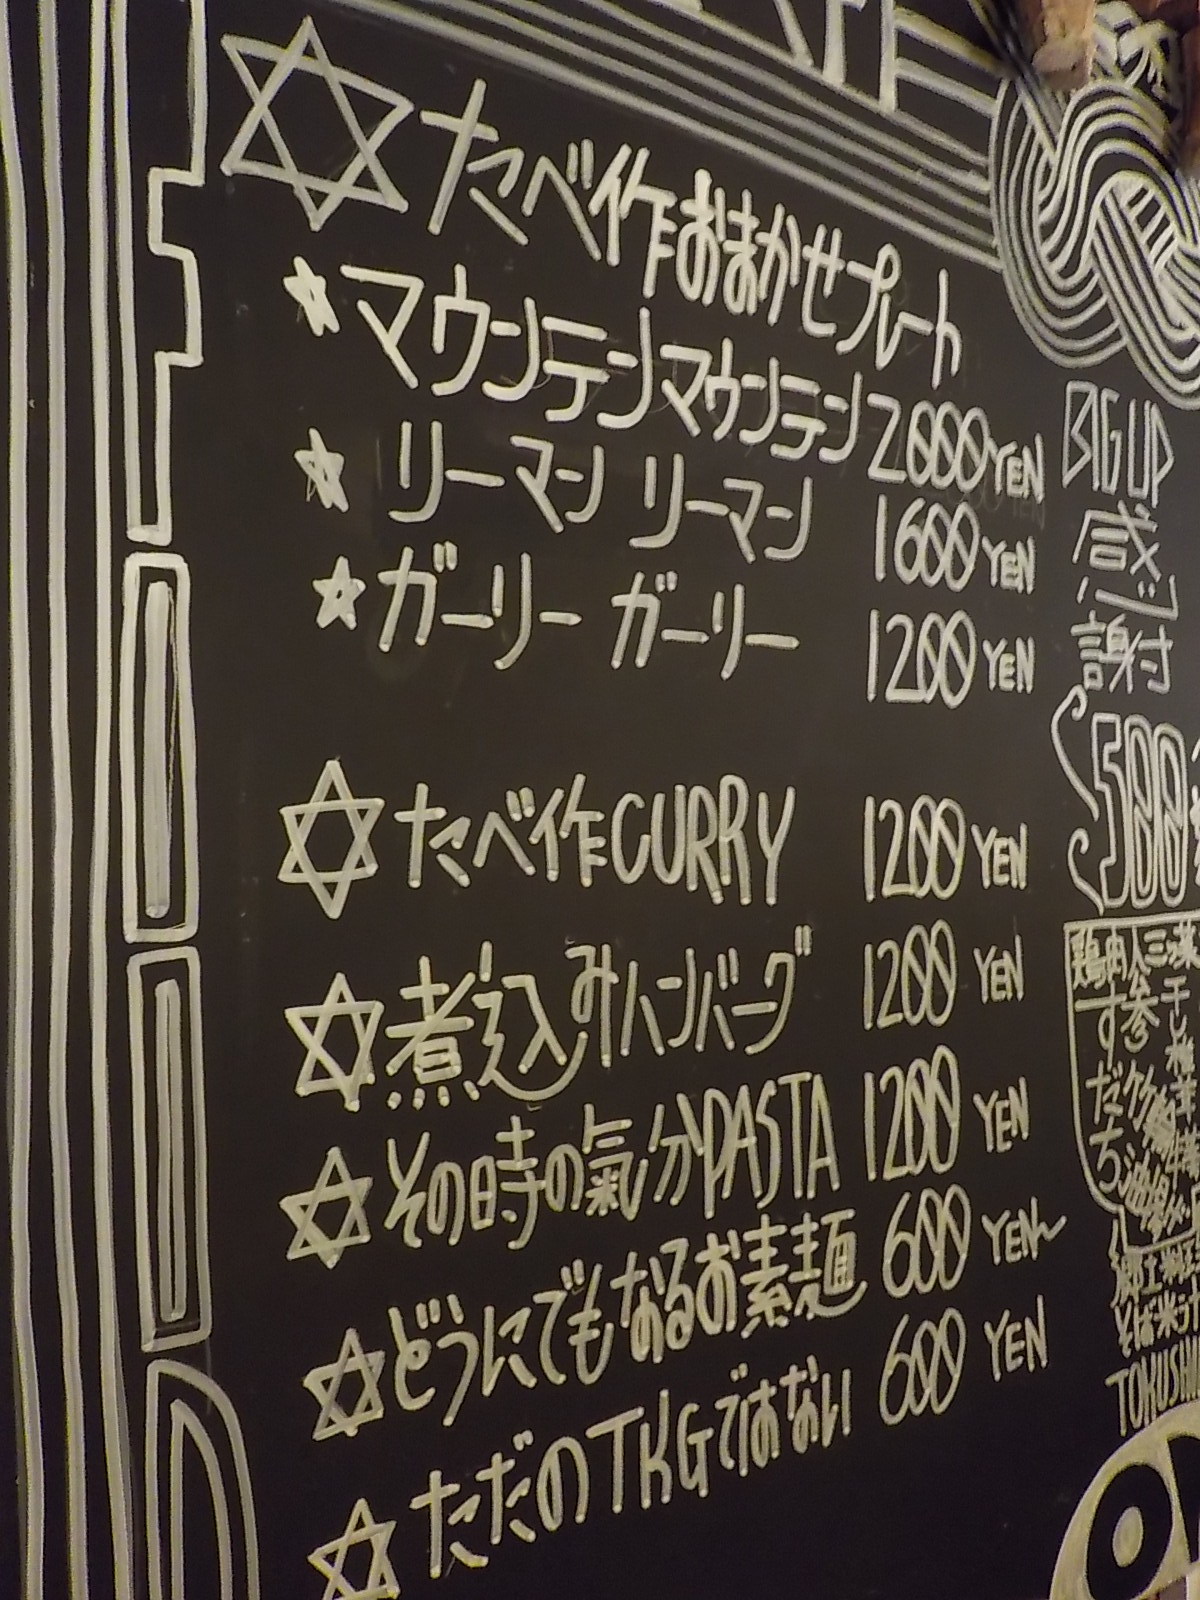 たべ作おまかせプレート
マウンテンマウンテン 2000YEN
リーマン リーマン 1600 YEN
ガーリー ガーリー 1200 YEN
たべ作CURRY 1200 YEN
煮込みハンバーグ 1200 YEN
その時の氣分PASTA 1200 YEN
どうにでもなるお素麺 600 YEN〜
ただのTKGではない 600 YEN
BIG UP
感謝
500
すだち
そば米